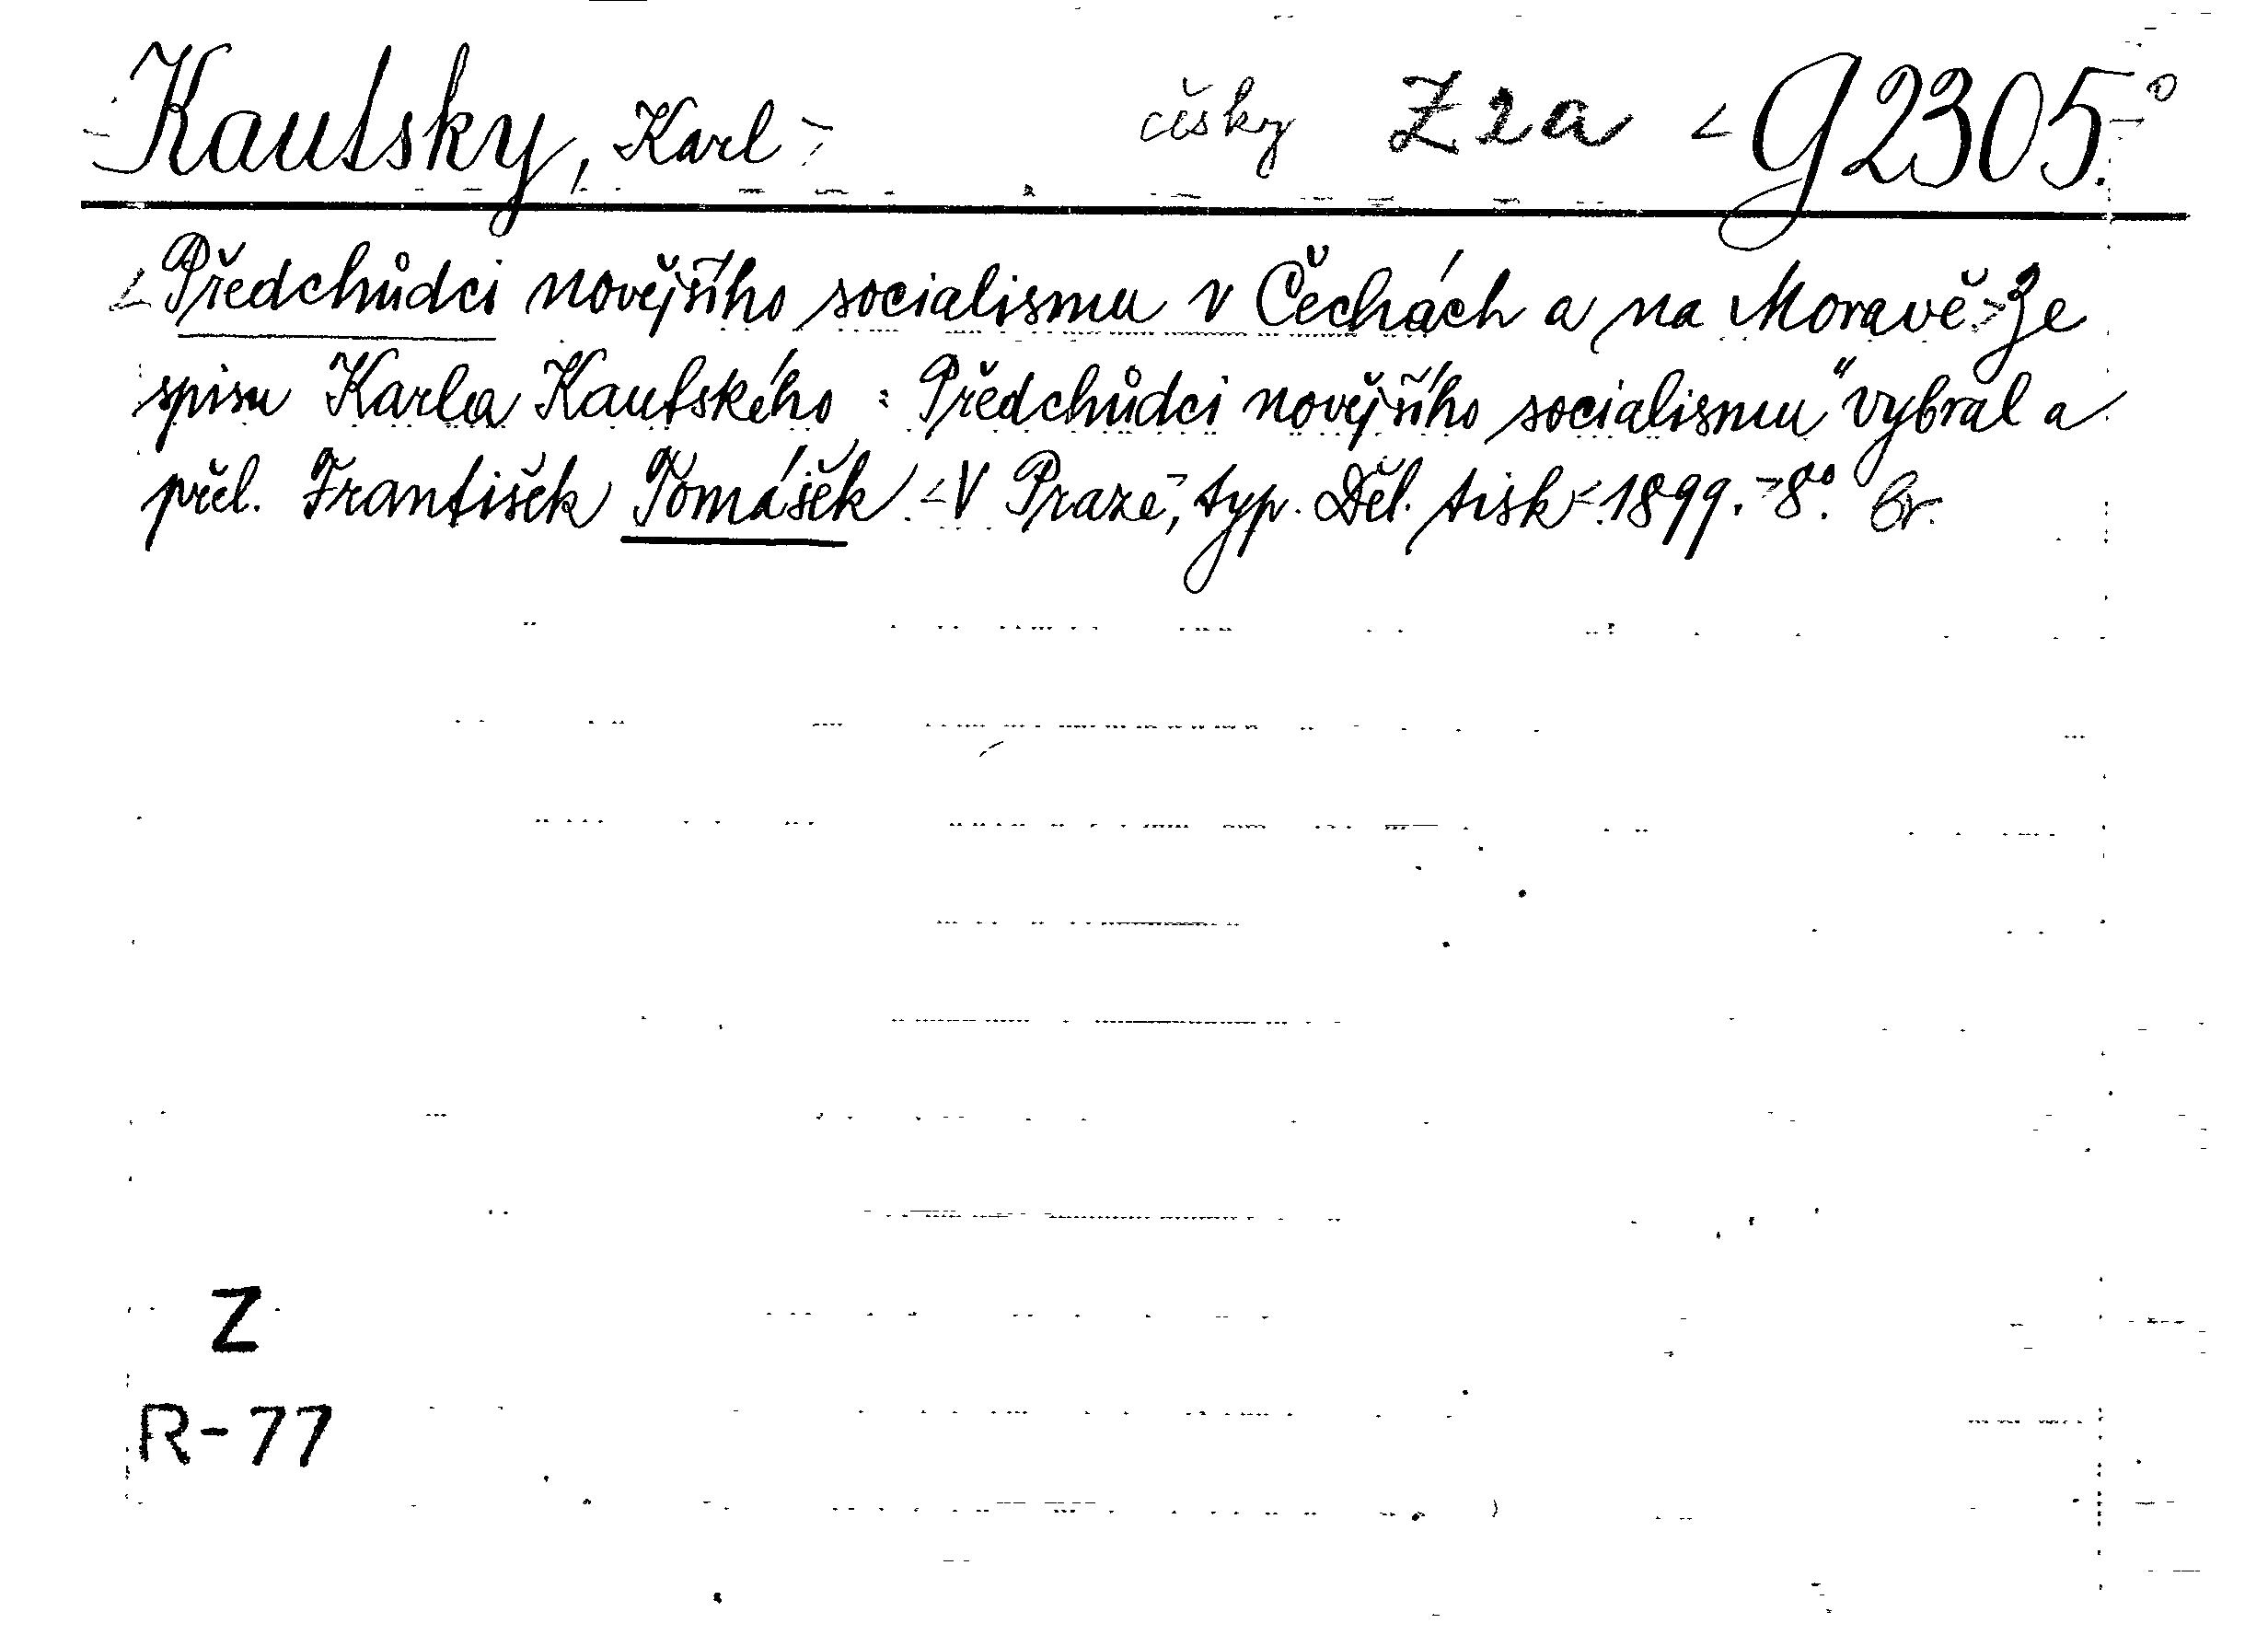 Kautsky, Karl česky Z 2a G 2305.
Předchůdci novějšího socialismu v Čechách a na Moravě. Ze
spisu Karla Kautského : Předchůdci novějšího socialismu" vybral a
přel. František Tomášek. V Praze, typ. Děl. tisk. 1899. 8°. br.
Z
R-77